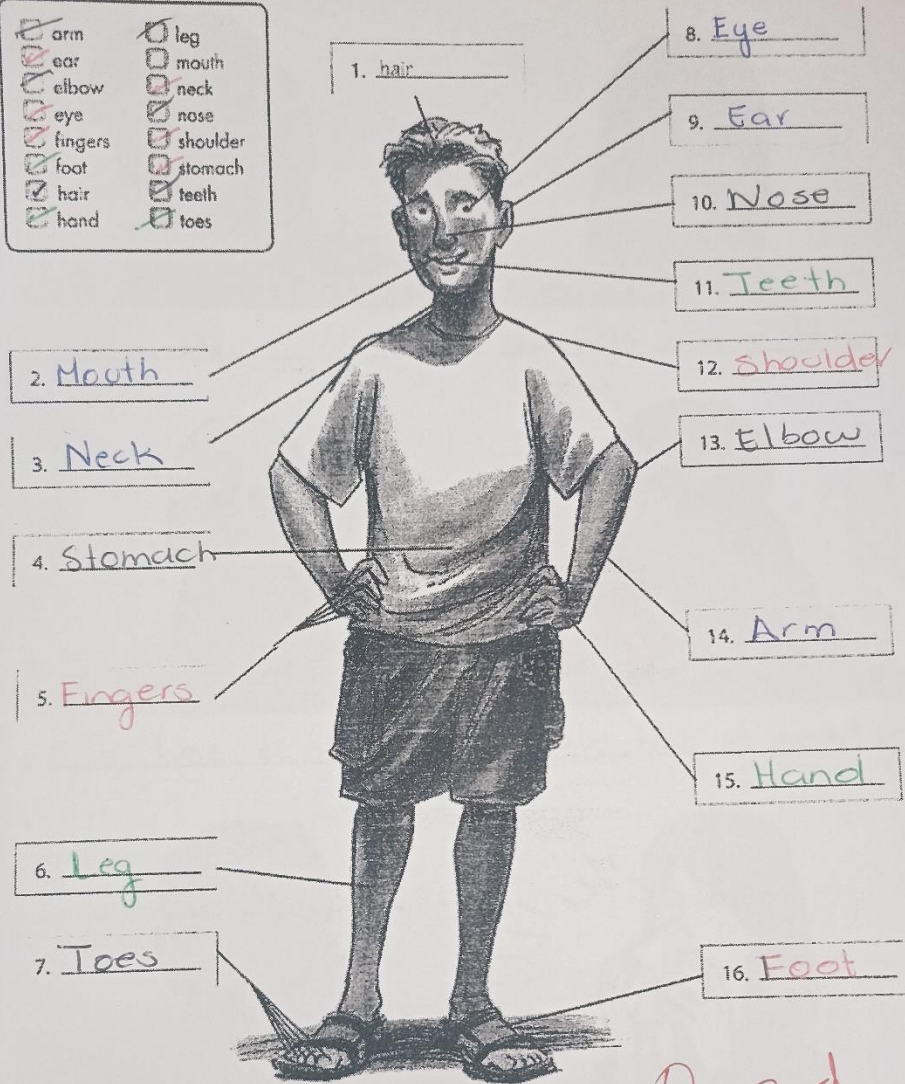 arm
ear
elbow
eye
fingers
foot
hair
hand
leg
mouth
neck
nose
shoulder
stomach
teeth
toes
1. hair
2. Mouth
3. Neck
4. Stomach
5. Fingers
6. Leg
7. Toes
8. Eye
9. Ear
10. Nose
11. Teeth
12. Shoulder
13. Elbow
14. Arm
15. Hand
16. Foot